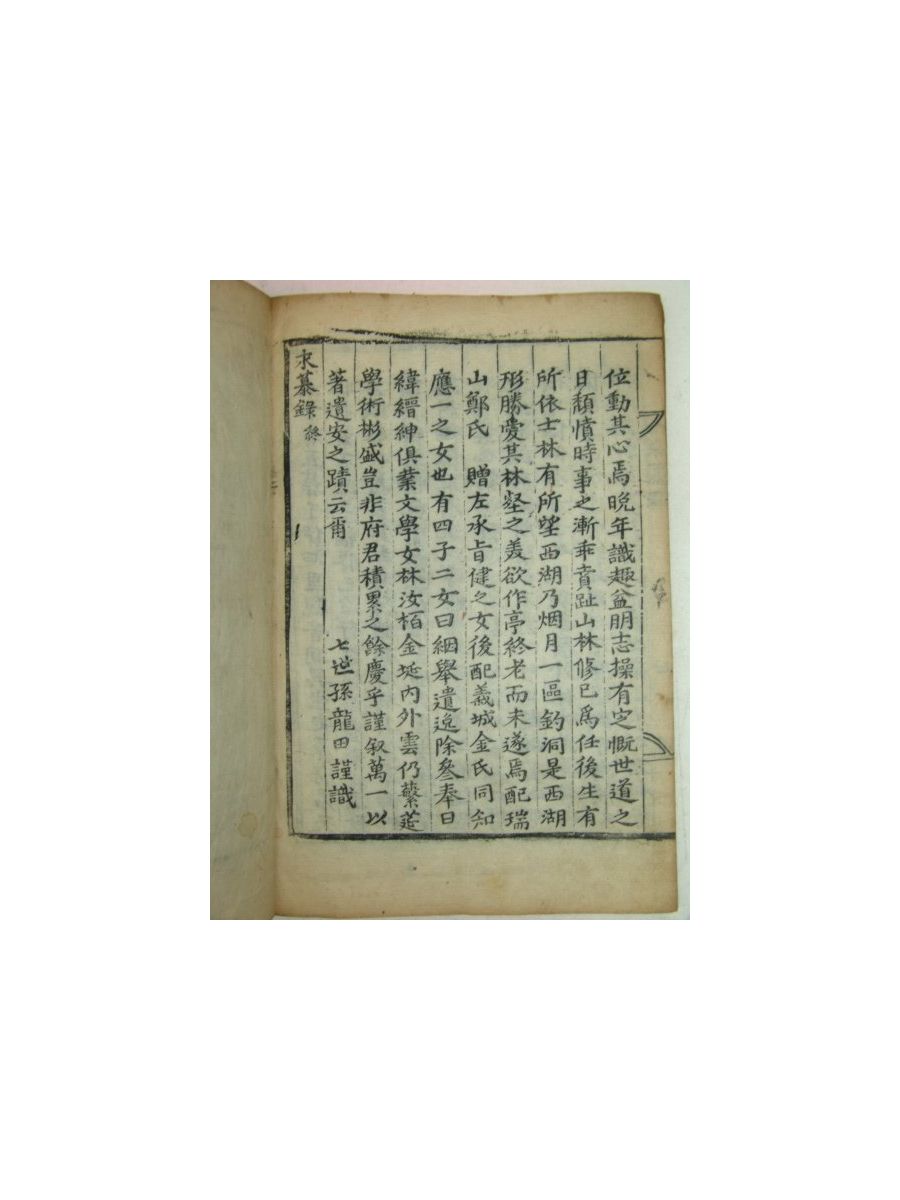 位動其心焉晩年識趣益明志操有定慨世道之
日頹憤時事之漸乖賁趾山林修已爲任後生有
所依士林有所望西湖乃烟月一區釣洞是西湖
形勝愛其林壑之美欲作亭終老而未遂焉配瑞
山鄭氏 贈左承旨健之女後配義城金氏同知
應一之女也有四子二女曰絪舉遺逸除叅奉曰
緯縉紳俱業文學女林汝栢金埏內外雲仍蘩莚
學術彬盛豈非府君積累之餘慶乎謹叙萬一以
著遺安之蹟云爾 七世孫龍田謹識
永慕錄 終